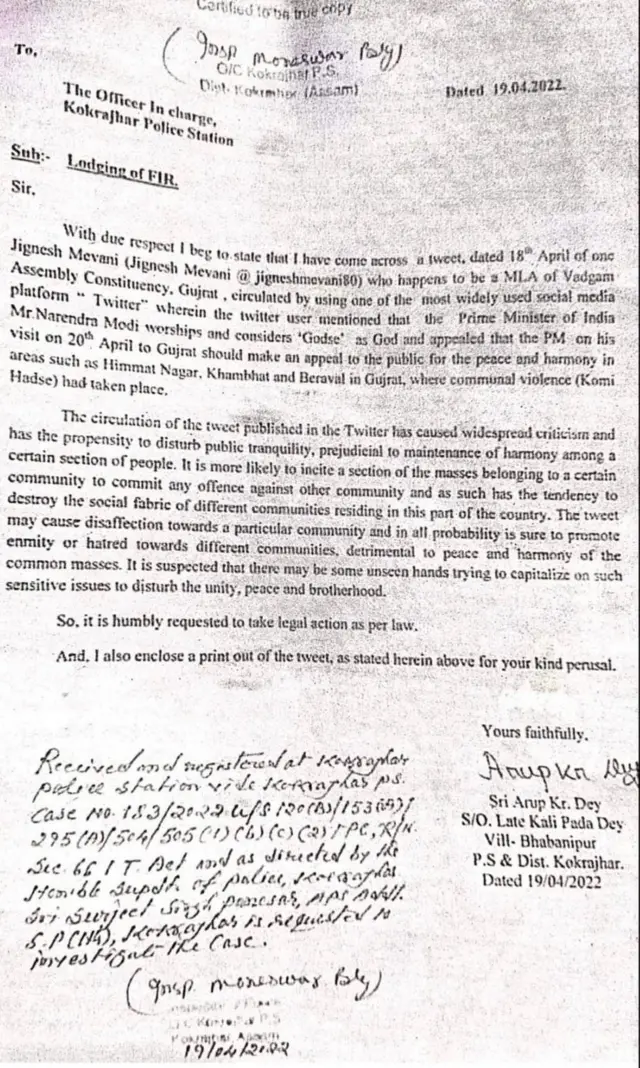 Certified to be true copy
(Insp Moneswar Bdy)
O/C Kokrajhar P.S.
Dist- Kokrajhar (Assam)
To,
Dated 19.04.2022.
The Officer In charge,
Kokrajhar Police Station
Sub:- Lodging of FIR.
Sir.
With due respect I beg to state that I have come across a tweet, dated 18th April of one
Jignesh Mevani (Jignesh Mevani @ jigneshmevani80) who happens to be a MLA of Vadgam
Assembly Constituency, Gujrat , circulated by using one of the most widely used social media
platform " Twitter" wherein the twitter user mentioned that the Prime Minister of India
Mr.Narendra Modi worships and considers 'Godse' as God and appealed that the PM on his
visit on 20th April to Gujrat should make an appeal to the public for the peace and harmony in
areas such as Himmat Nagar, Khambhat and Beraval in Gujrat, where communal violence (Komi
Hadse) had taken place.
The circulation of the tweet published in the Twitter has caused widespread criticism and
has the propensity to disturb public tranquility, prejudicial to maintenance of harmony among a
certain section of people. It is more likely to incite a section of the masses belonging to a certain
community to commit any offence against other community and as such has the tendency to
destroy the social fabric of different communities residing in this part of the country. The tweet
may cause disaffection towards a particular community and in all probability is sure to promote
enmity or hatred towards different communities, detrimental to peace and harmony of the
common masses. It is suspected that there may be some unseen hands trying to capitalize on such
sensitive issues to disturb the unity, peace and brotherhood.
So, it is humbly requested to take legal action as per law.
And, I also enclose a print out of the tweet, as stated herein above for your kind perusal.
Yours faithfully,
Arup Kr Dey
Sri Arup Kr. Dey
S/O. Late Kali Pada Dey
Vill- Bhabanipur
P.S & Dist. Kokrajhar.
Dated 19/04/2022
Received and registered at Kokrajhar
police station vide Kokrajhar ps.
Case No. 153/2022 u/s 120(B)/153(A)/
295(A)/504/505(1)(b)(c)(2) IPC, R/W.
Sec. 66 I T. Act and as directed by the
Honble Supdt of police, Kokrajhar
Sri Surjeet Singh Panesar, APS Addl.
S.P (HQ), Kokrajhar is requested to
investigate the case.
(Insp Moneswar Bdy)
O/C Kokrajhar P.S
Kokrajhar, Assam
19/04/2022